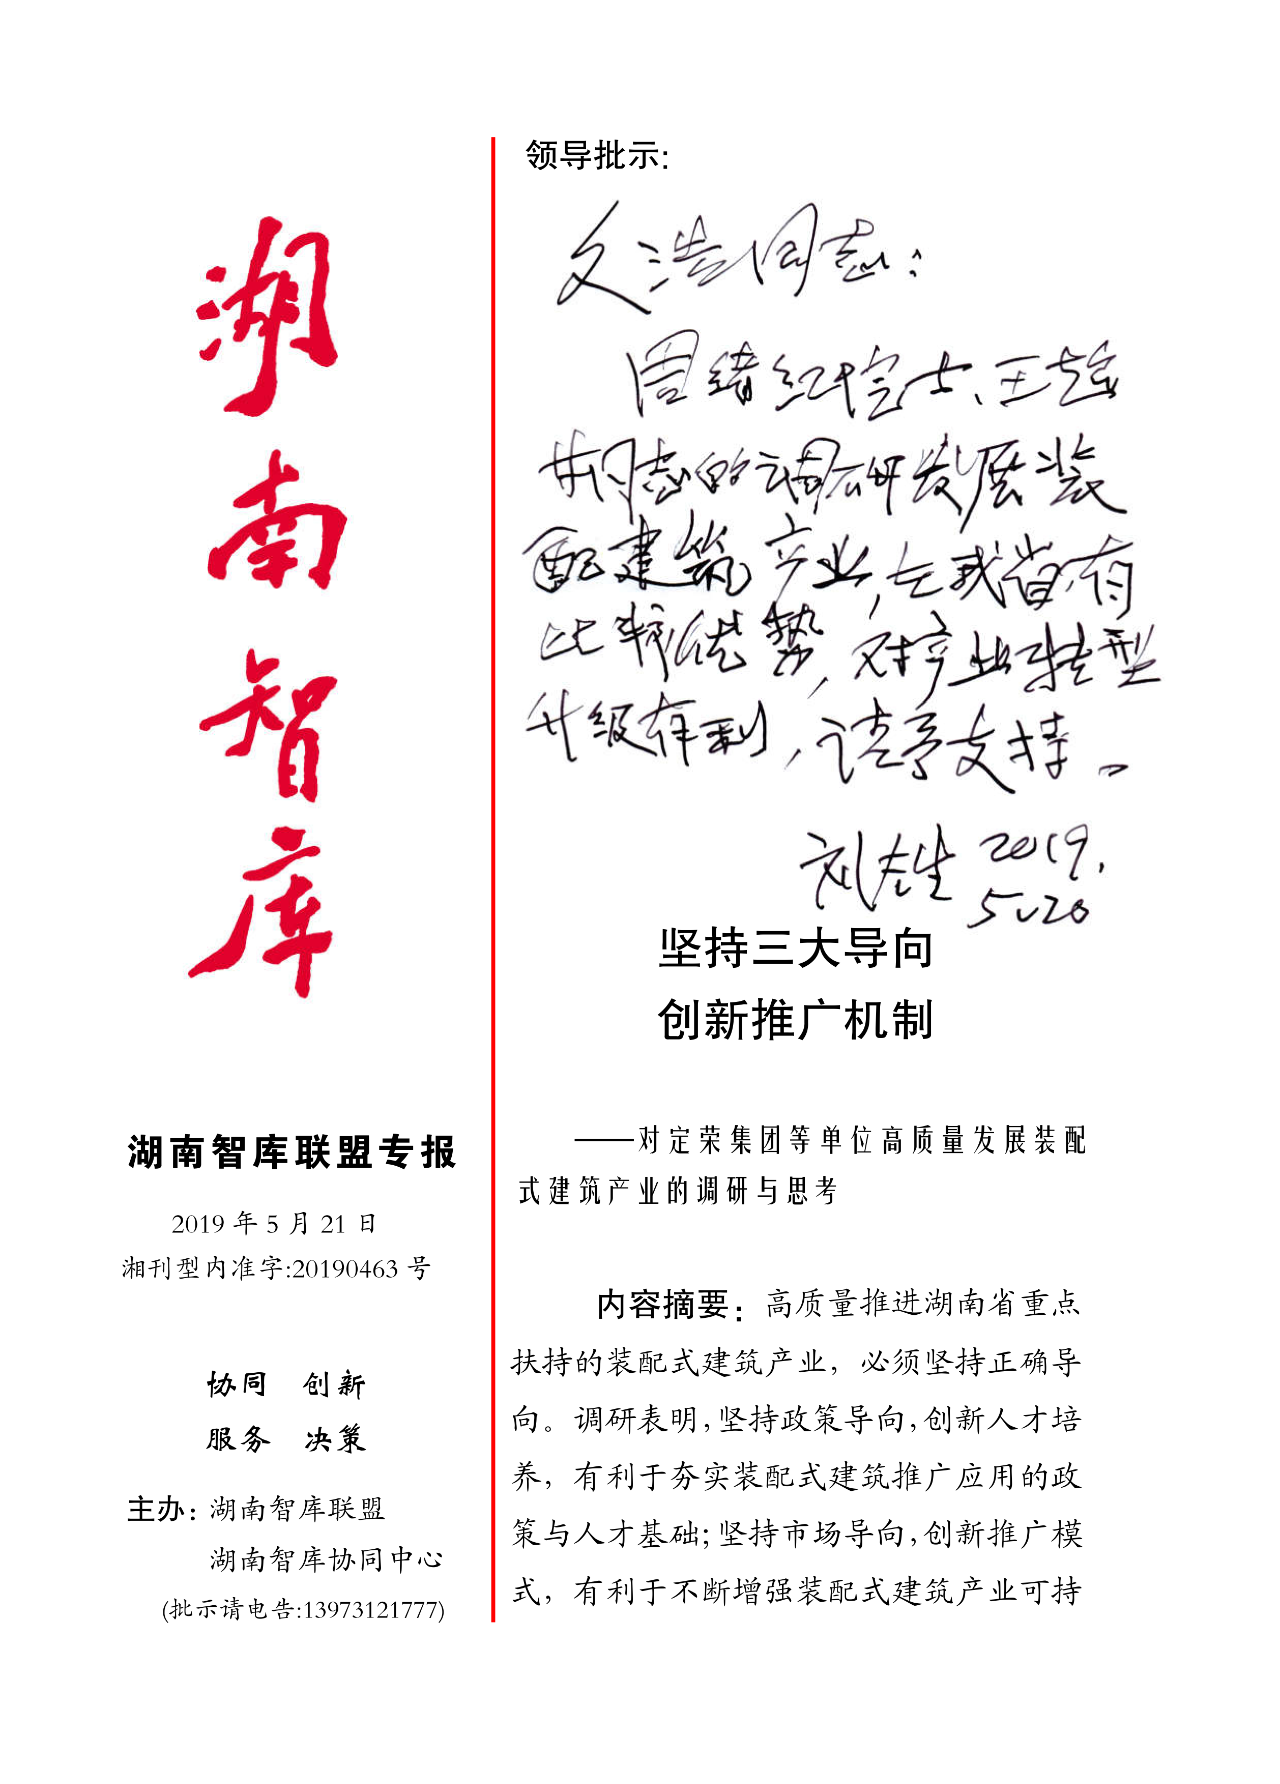 湖南智库
湖南智库联盟专报
2019 年 5 月 21 日
湘刊型内准字:20190463 号
协同 创新
服务 决策
主办: 湖南智库联盟
湖南智库协同中心
(批示请电告:13973121777)
领导批示:
文浩同志:
周绪红院士、王
同志的调研发展装
配建筑产业,在我省有
比较优势,对产业转型
升级有利,请予支持。
2019.
5.20
坚持三大导向
创新推广机制
——对定荣集团等单位高质量发展装配
式建筑产业的调研与思考
内容摘要: 高质量推进湖南省重点
扶持的装配式建筑产业, 必须坚持正确导
向。调研表明,坚持政策导向,创新人才培
养, 有利于夯实装配式建筑推广应用的政
策与人才基础;坚持市场导向,创新推广模
式, 有利于不断增强装配式建筑产业可持